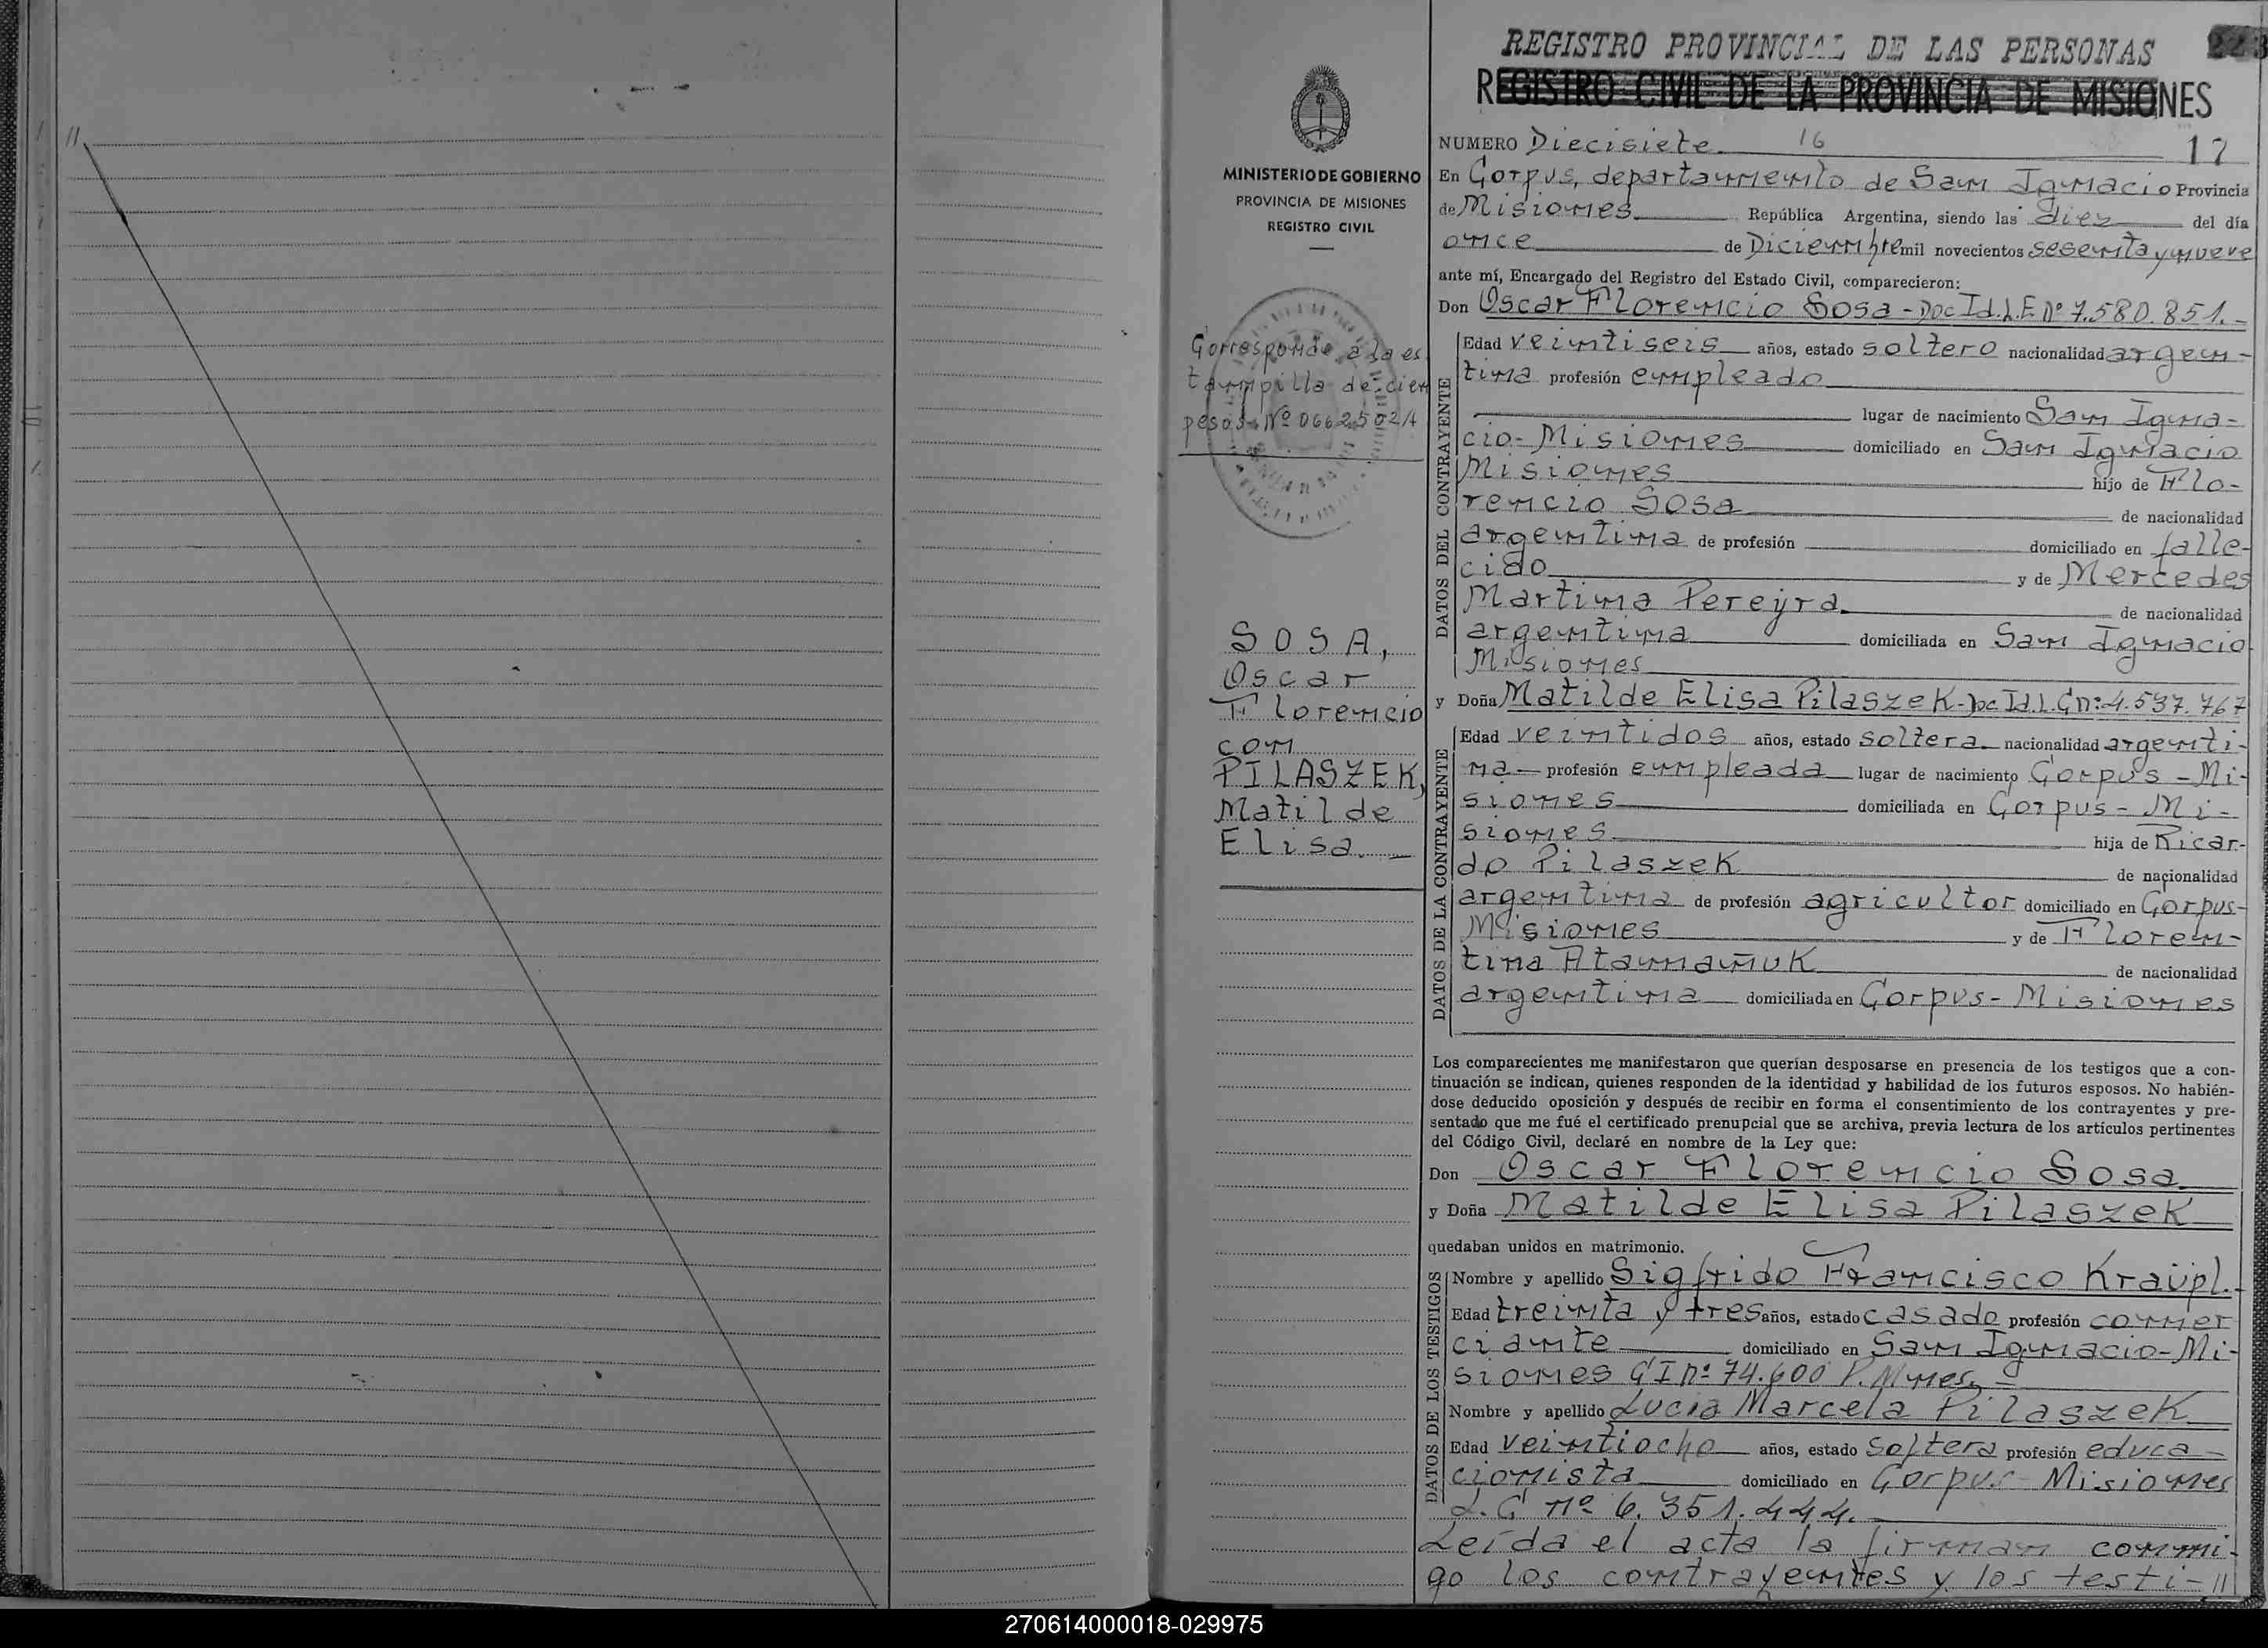 //
MINISTERIO DE GOBIERNO
PROVINCIA DE MISIONES
REGISTRO CIVIL
Corresponde á la es
tampilla de cien
pesos Nº 0662502/A
SOSA,
Oscar
Florencio
con
PILASZEK,
Matilde
Elisa. —
REGISTRO PROVINCIAL DE LAS PERSONAS
REGISTRO CIVIL DE LA PROVINCIA DE MISIONES
NUMERO Diecisiete 16 17
En Corpus, departamento de San Ignacio Provincia
de Misiones República Argentina, siendo las diez del día
once de Diciembre mil novecientos sesenta y nueve
ante mí, Encargado del Registro del Estado Civil, comparecieron:
Don Oscar Florencio Sosa - Doc Id. L.E. Nº 7.580.851.-
DATOS DEL CONTRAYENTE
Edad veintiseis años, estado soltero nacionalidad argen-
tina profesión empleado
lugar de nacimiento San Igna-
cio-Misiones domiciliado en San Ignacio
Misiones hijo de Flo-
rencio Sosa de nacionalidad
argentina de profesión domiciliado en falle-
cido y de Mercedes
Martina Pereyra de nacionalidad
argentina domiciliada en San Ignacio
Misiones
y Doña Matilde Elisa Pilaszek-Doc Id. L.C nº: 4.537.767
DATOS DE LA CONTRAYENTE
Edad veintidos años, estado soltera nacionalidad argenti-
na profesión empleada lugar de nacimiento Corpus - Mi-
siones domiciliada en Corpus - Mi-
siones hija de Ricar-
do Pilaszek de nacionalidad
argentina de profesión agricultor domiciliado en Corpus-
Misiones y de Floren-
tina Atamañuk de nacionalidad
argentina domiciliada en Corpus - Misiones
Los comparecientes me manifestaron que querían desposarse en presencia de los testigos que a con-
tinuación se indican, quienes responden de la identidad y habilidad de los futuros esposos. No habién-
dose deducido oposición y después de recibir en forma el consentimiento de los contrayentes y pre-
sentado que me fué el certificado prenupcial que se archiva, previa lectura de los artículos pertinentes
del Código Civil, declaré en nombre de la Ley que:
Don Oscar Florencio Sosa
y Doña Matilde Elisa Pilaszek
quedaban unidos en matrimonio.
DATOS DE LOS TESTIGOS
Nombre y apellido Sigfrido Francisco Kraüpl.-
Edad treinta y tres años, estado casado profesión comer
ciante domiciliado en San Ignacio-Mi-
siones C I nº 74.600 P. Mnes.
Nombre y apellido Lucia Marcela Pilaszek
Edad veintiocho años, estado soltera profesión educa-
cionista domiciliado en Corpus Misiones
L.C nº 6.351.444.
Leída el acta la firman conmi-
go los contrayentes y los testi-//
270614000018-029975